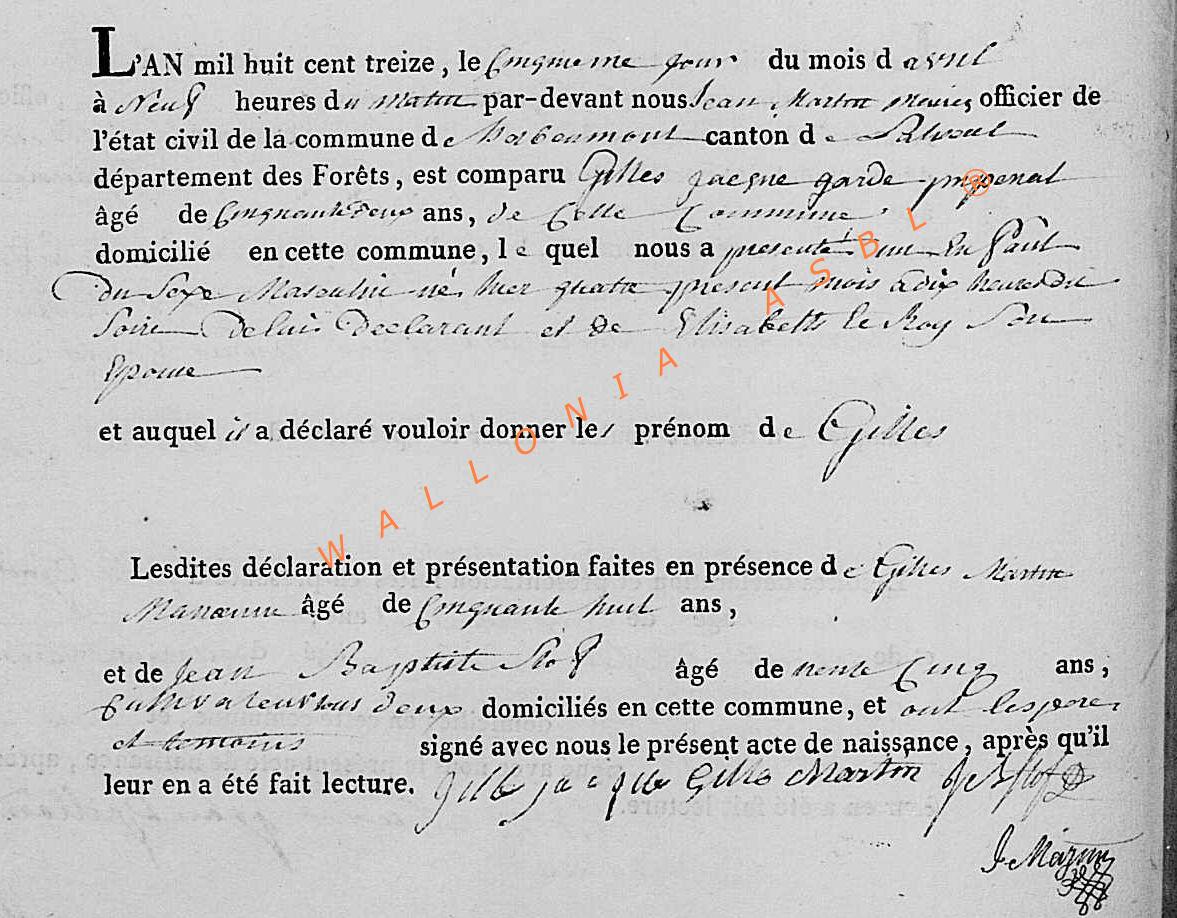 L'AN mil huit cent treize, le Cinquieme jour du mois d avril
à Neuf heures du matin par-devant nous Jean Martin maire officier de
l'état civil de la commune de Herbeumont canton de
département des Forêts, est comparu Gilles Jacque garde
âgé de Cinquante deux ans, de Cette Commune
domicilié en cette commune, le quel nous a presenté un Enfant
Du Sexe Masculin né hier quatre present mois a dix heures du
Soire De lui Declarant et de Elisabeth le Roy Son
Epouse
et auquel il a déclaré vouloir donner les prénom de Gilles
Lesdites déclaration et présentation faites en présence de Gilles Martin
Manoeuvre âgé de Cinquante huit ans,
et de Jean Baptiste âgé de trente Cinq ans,
Cultivateur tous deux domiciliés en cette commune, et ont les peres
et temoins signé avec nous le présent acte de naissance, après qu'il
leur en a été fait lecture. Gille jacque Gille Martin
J Martin
WALLONIA ASBL ®